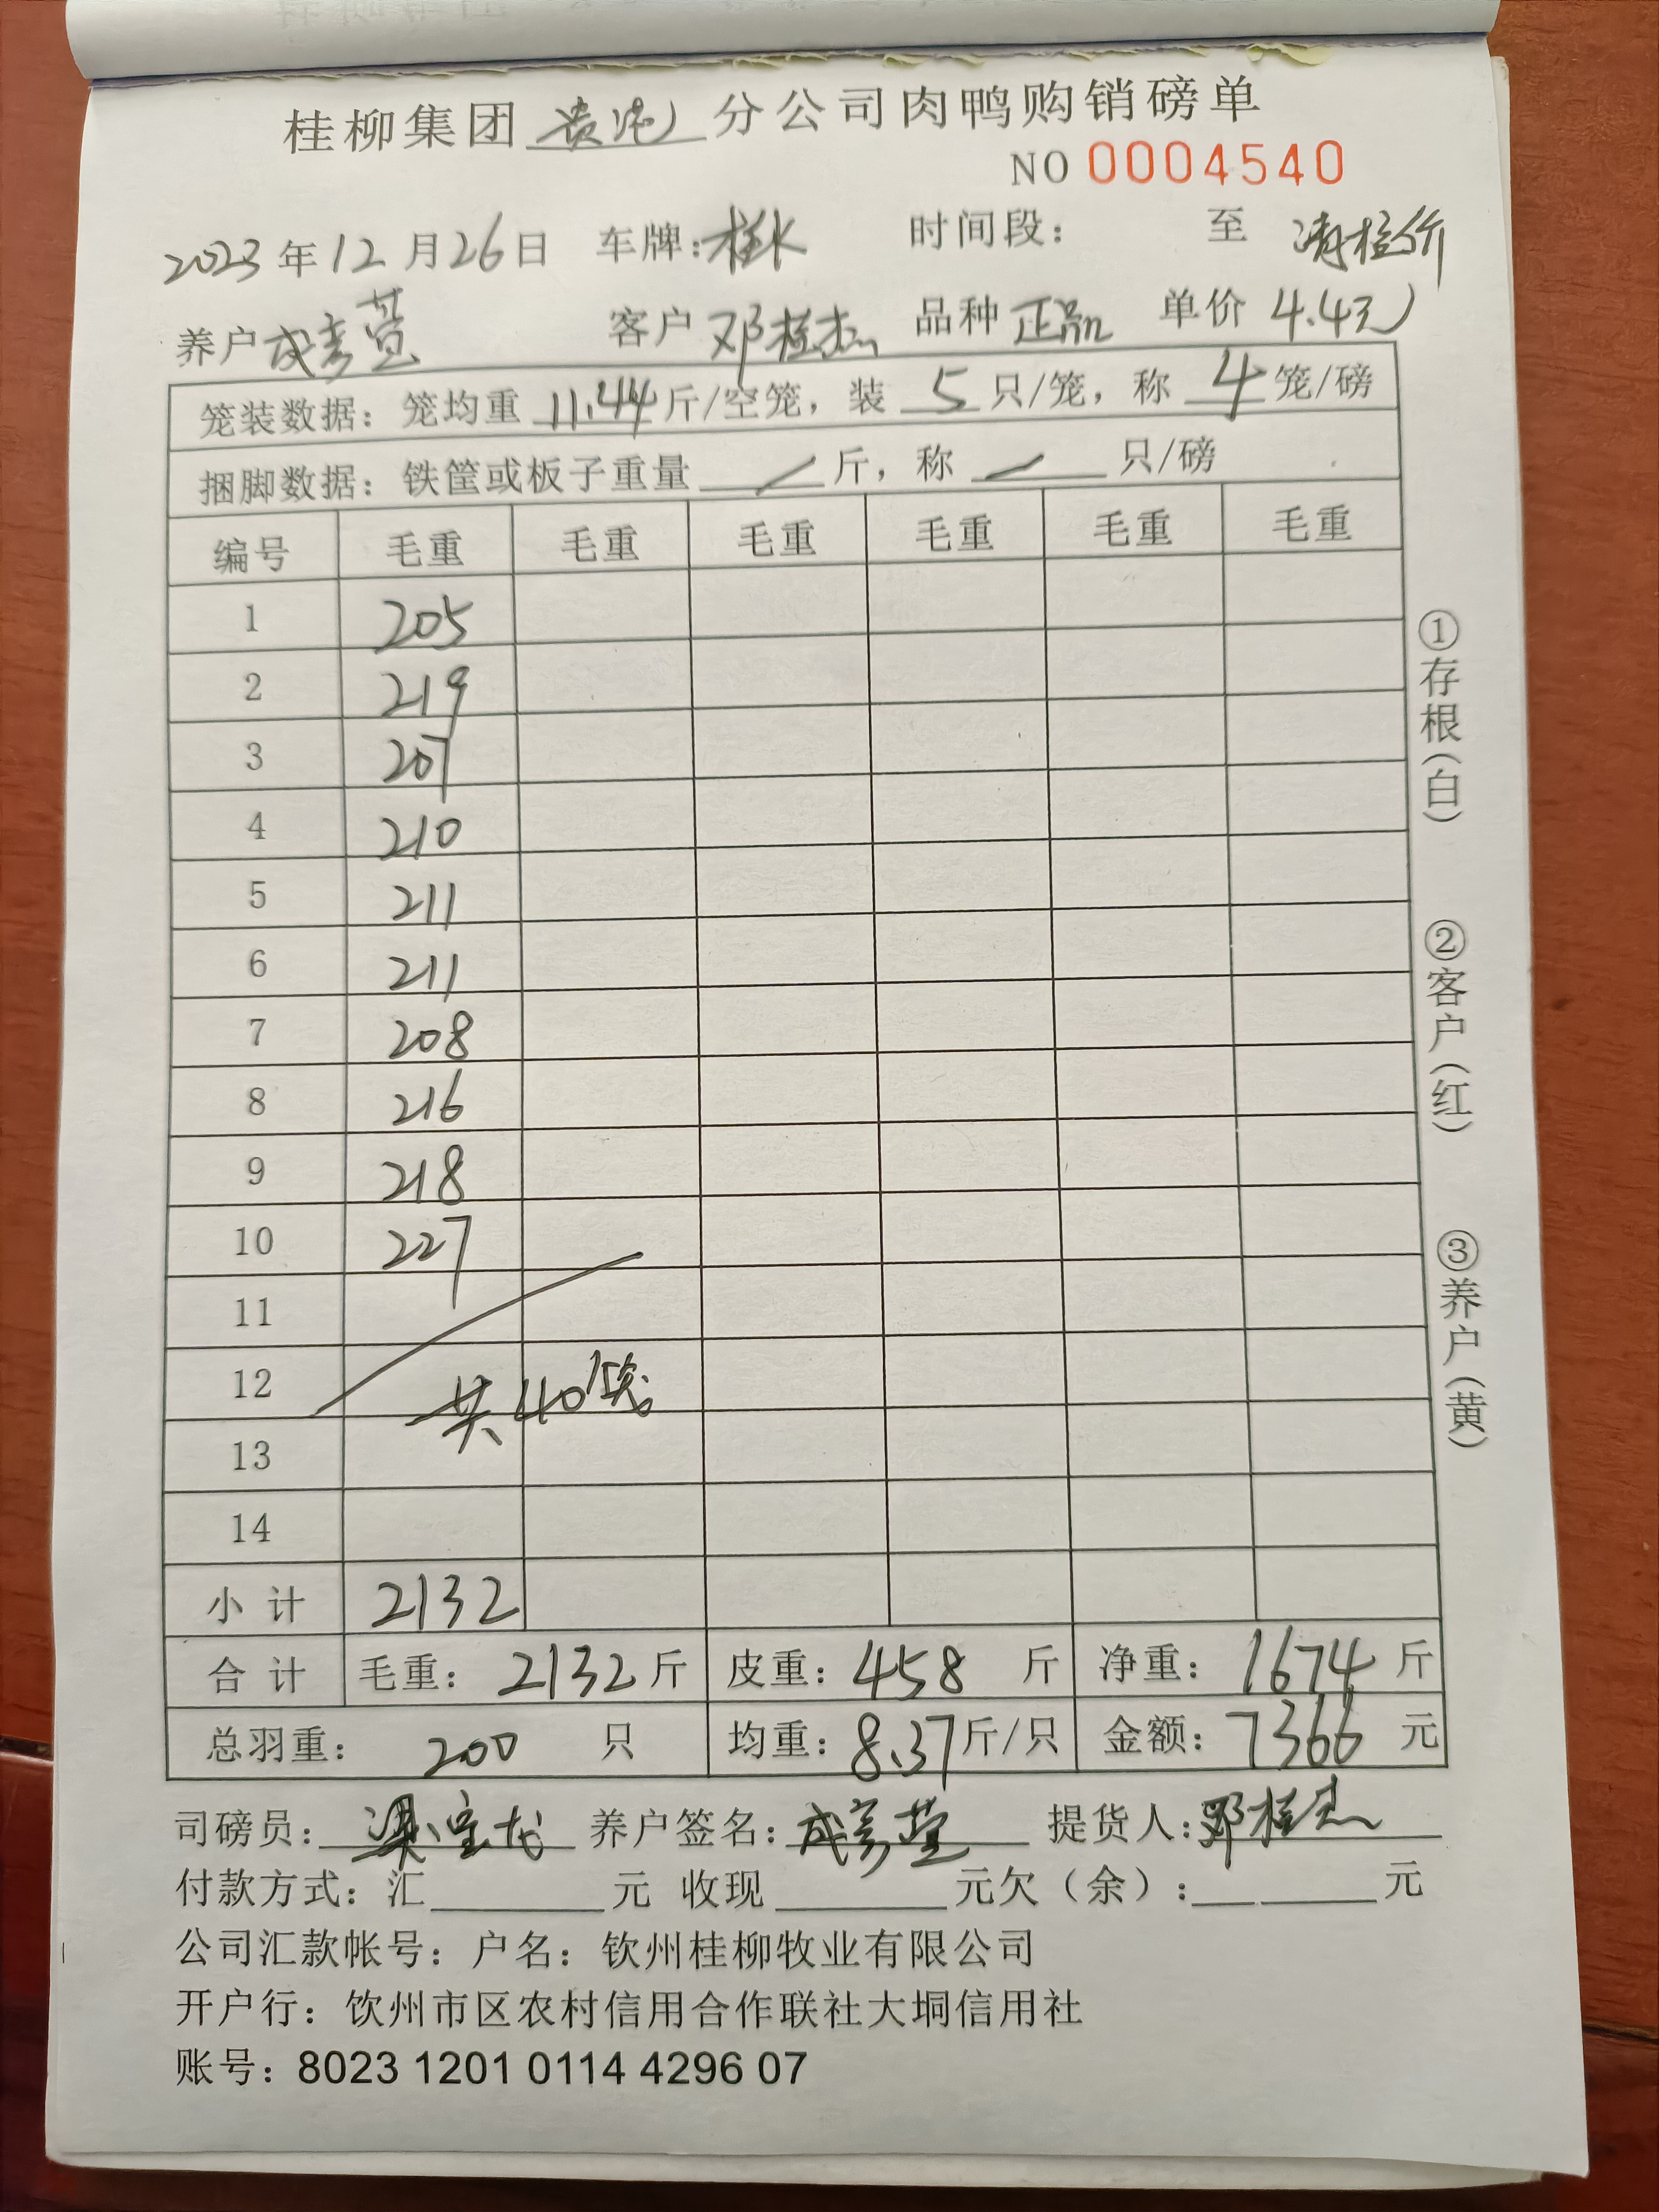 桂柳集团 贵港 分公司肉鸭购销磅单
NO 0004540
2023 年 12 月 26 日 车牌: 时间段: 至
养户 客户 邓桂杰 品种 正品 单价 4.4元
笼装数据: 笼均重 11.44 斤/空笼, 装 5 只/笼, 称 4 笼/磅
捆脚数据: 铁筐或板子重量 / 斤, 称 / 只/磅
编号 毛重 毛重 毛重 毛重 毛重 毛重
1 205
2 219
3 207
4 210
5 211
6 211
7 208
8 216
9 218
10 227
11
12 共40笼
13
14
小计 2132
合计 毛重: 2132 斤 皮重: 458 斤 净重: 1674 斤
总羽重: 200 只 均重: 8.37 斤/只 金额: 7366 元
司磅员: 养户签名: 提货人: 邓桂杰
付款方式: 汇 元 收现 元欠(余): 元
公司汇款帐号: 户名: 钦州桂柳牧业有限公司
开户行: 饮州市区农村信用合作联社大垌信用社
账号: 8023 1201 0114 4296 07
①存根(白)
②客户(红)
③养户(黄)